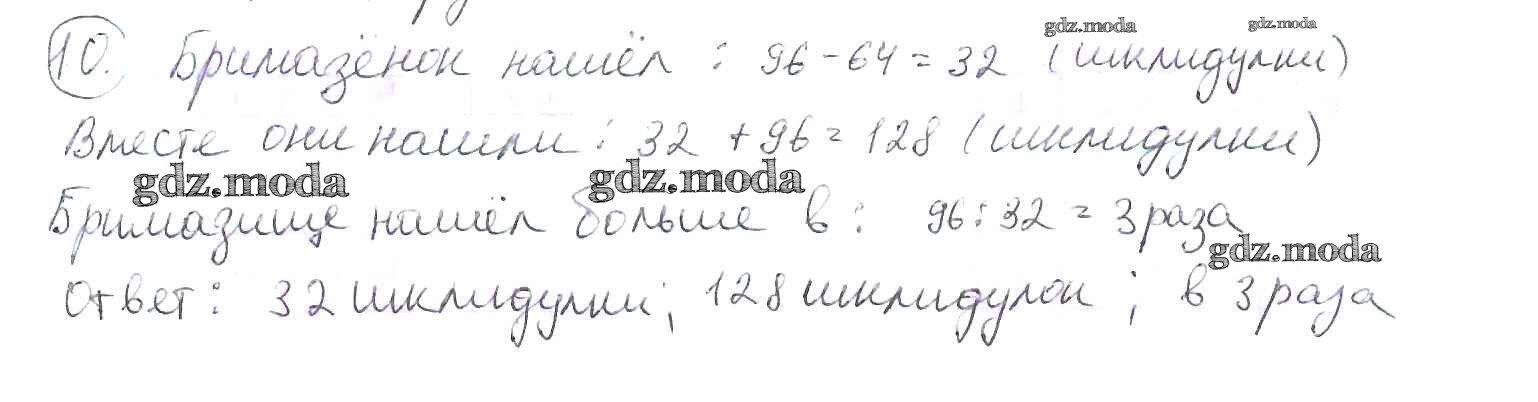 gdz.moda gdz.moda
10. Бримазёнок нашёл : 96 - 64 = 32 (шклидулки)
Вместе они нашли : 32 + 96 = 128 (шклидулки)
gdz.moda gdz.moda
Бримазище нашёл больше в : 96 : 32 = 3 раза
gdz.moda
Ответ : 32 шклидулки ; 128 шклидулок ; в 3 раза